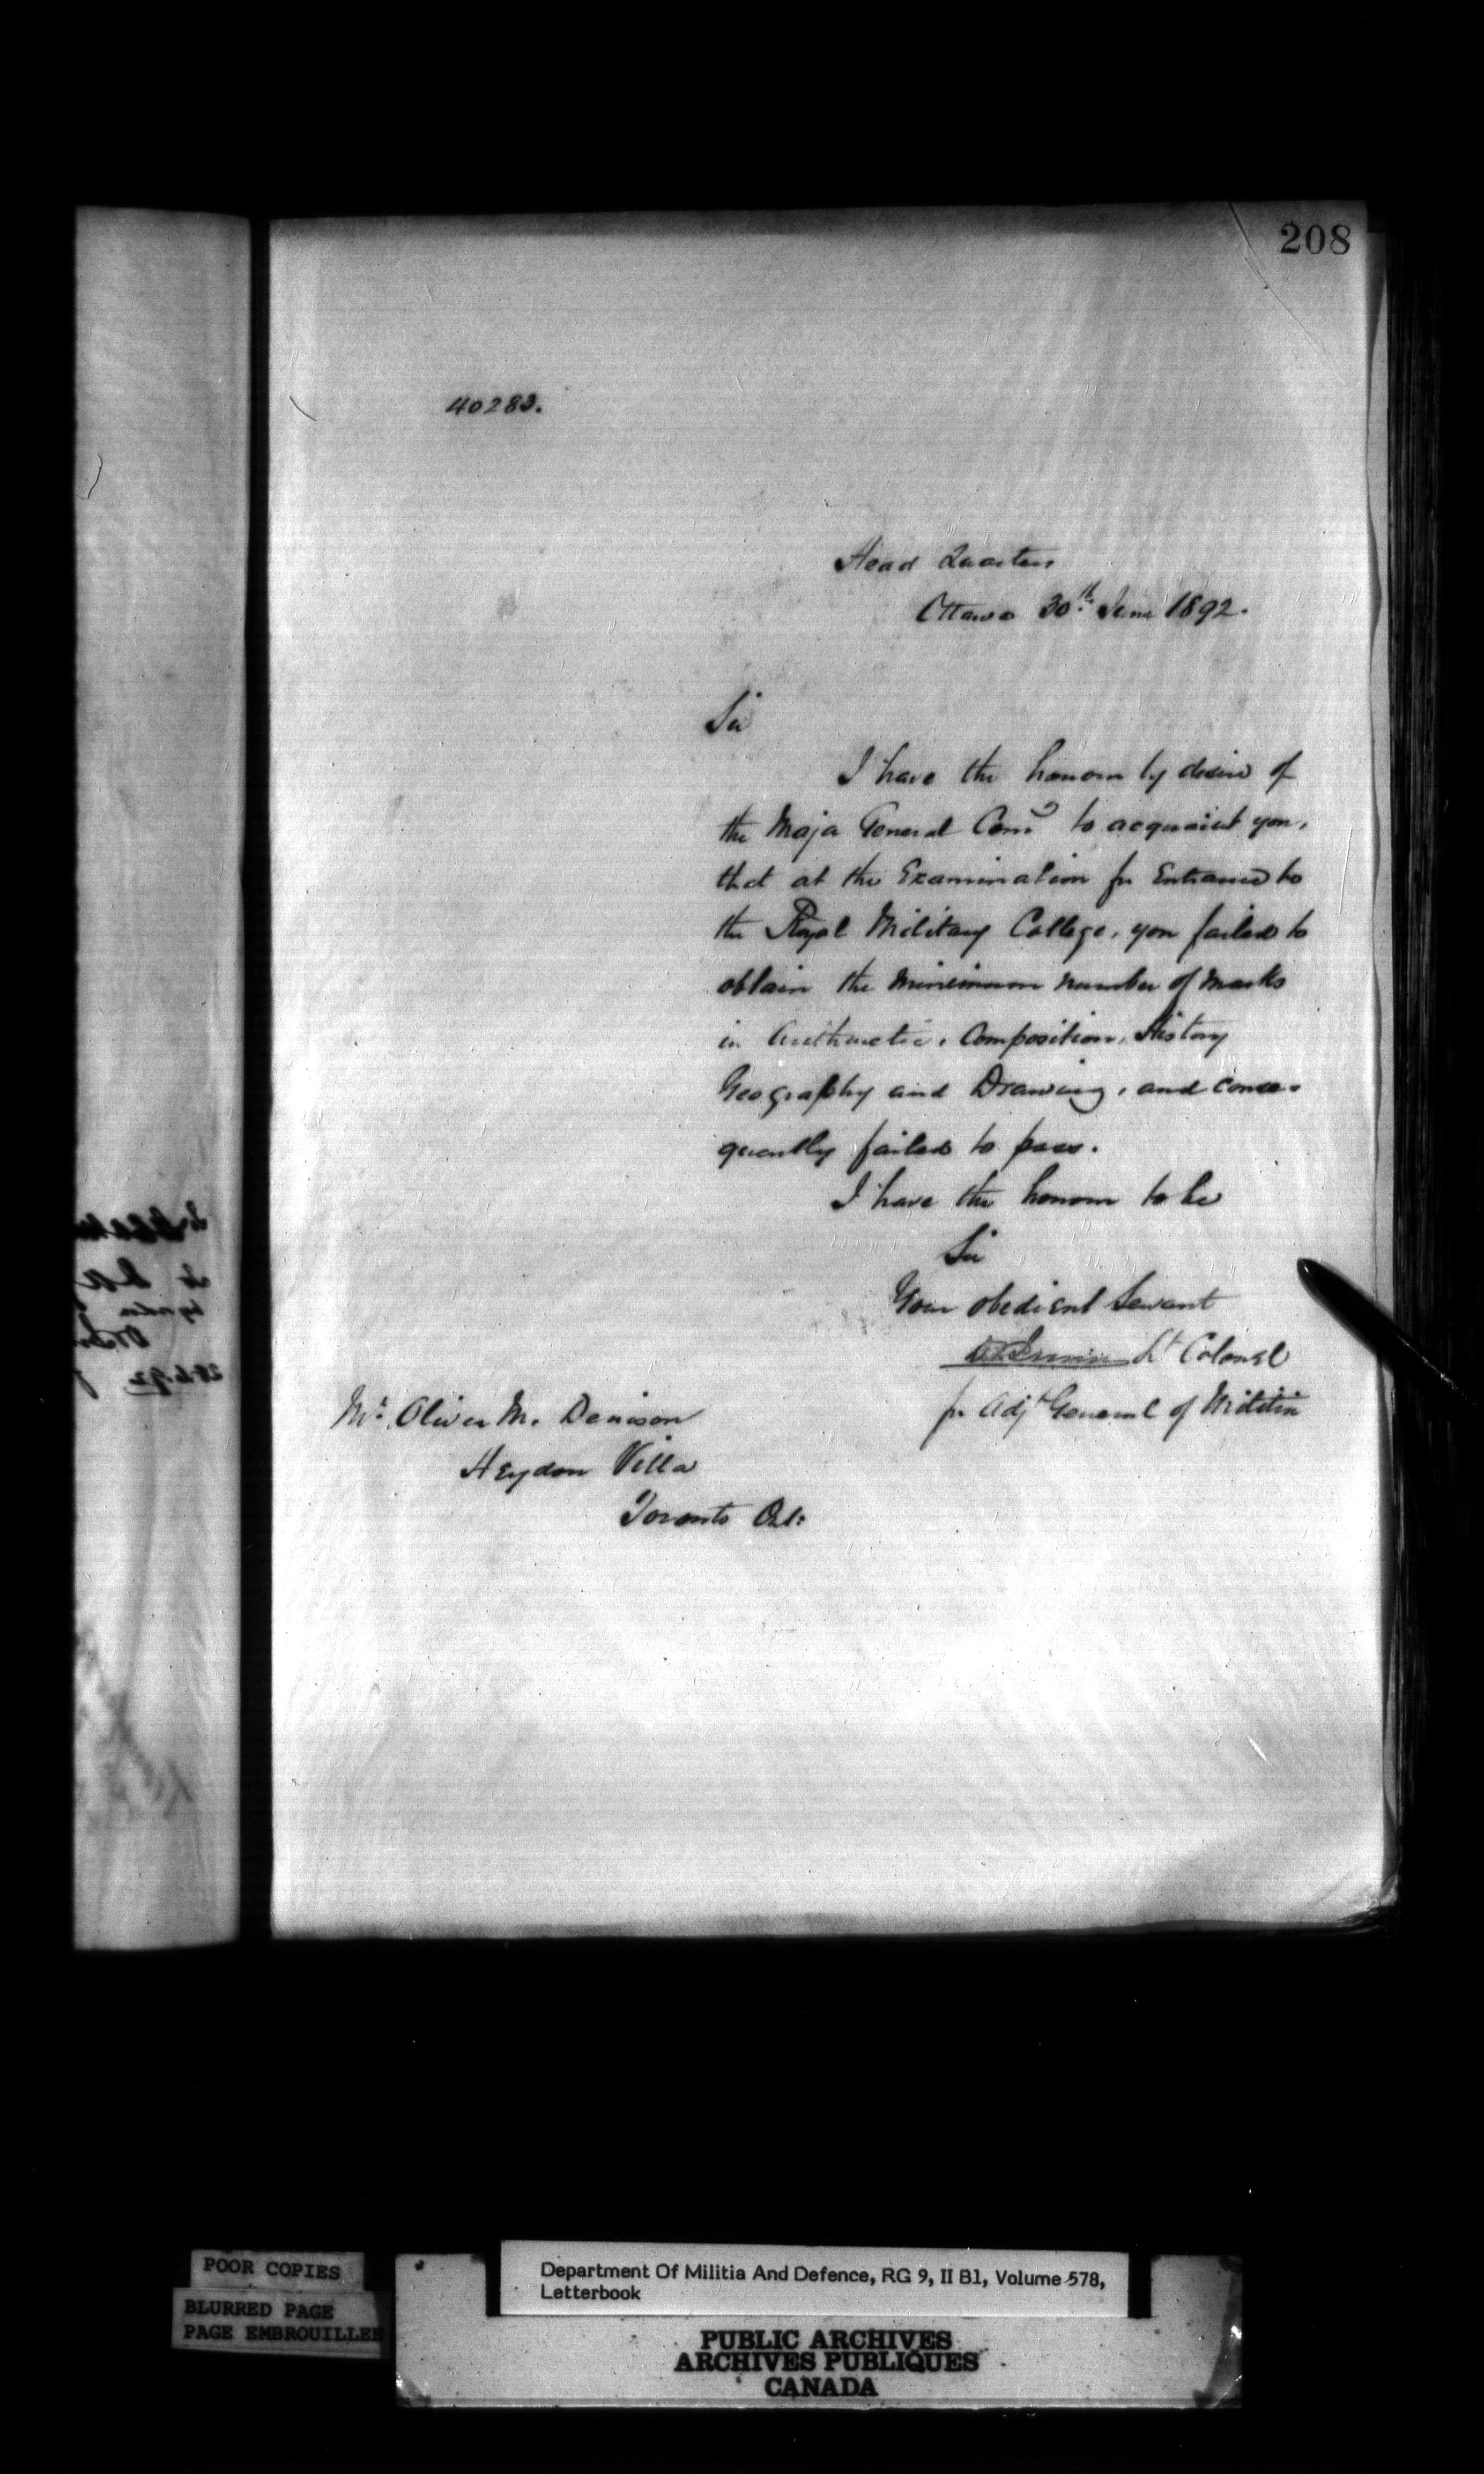 208
40283.
Head Quarters
Ottawa 30th June 1892.
Sir
I have the honour by desire of
the Major General Comg to acquaint you,
that at the Examination for Entrance to
the Royal Military College, you failed to
obtain the minimum number of marks
in Arithmetic, Composition, History
Geography and Drawing, and conse-
quently failed to pass.
I have the honour to be
Sir
Your obedient Servant
Lt Colonel
for Adjt General of Militia
Mr. Oliver M. Denison
Heydon Villa
Toronto Ont:
28.6.92
POOR COPIES
BLURRED PAGE
PAGE EMBROUILLEE
Department Of Militia And Defence, RG 9, II B1, Volume 578,
Letterbook
PUBLIC ARCHIVES
ARCHIVES PUBLIQUES
CANADA